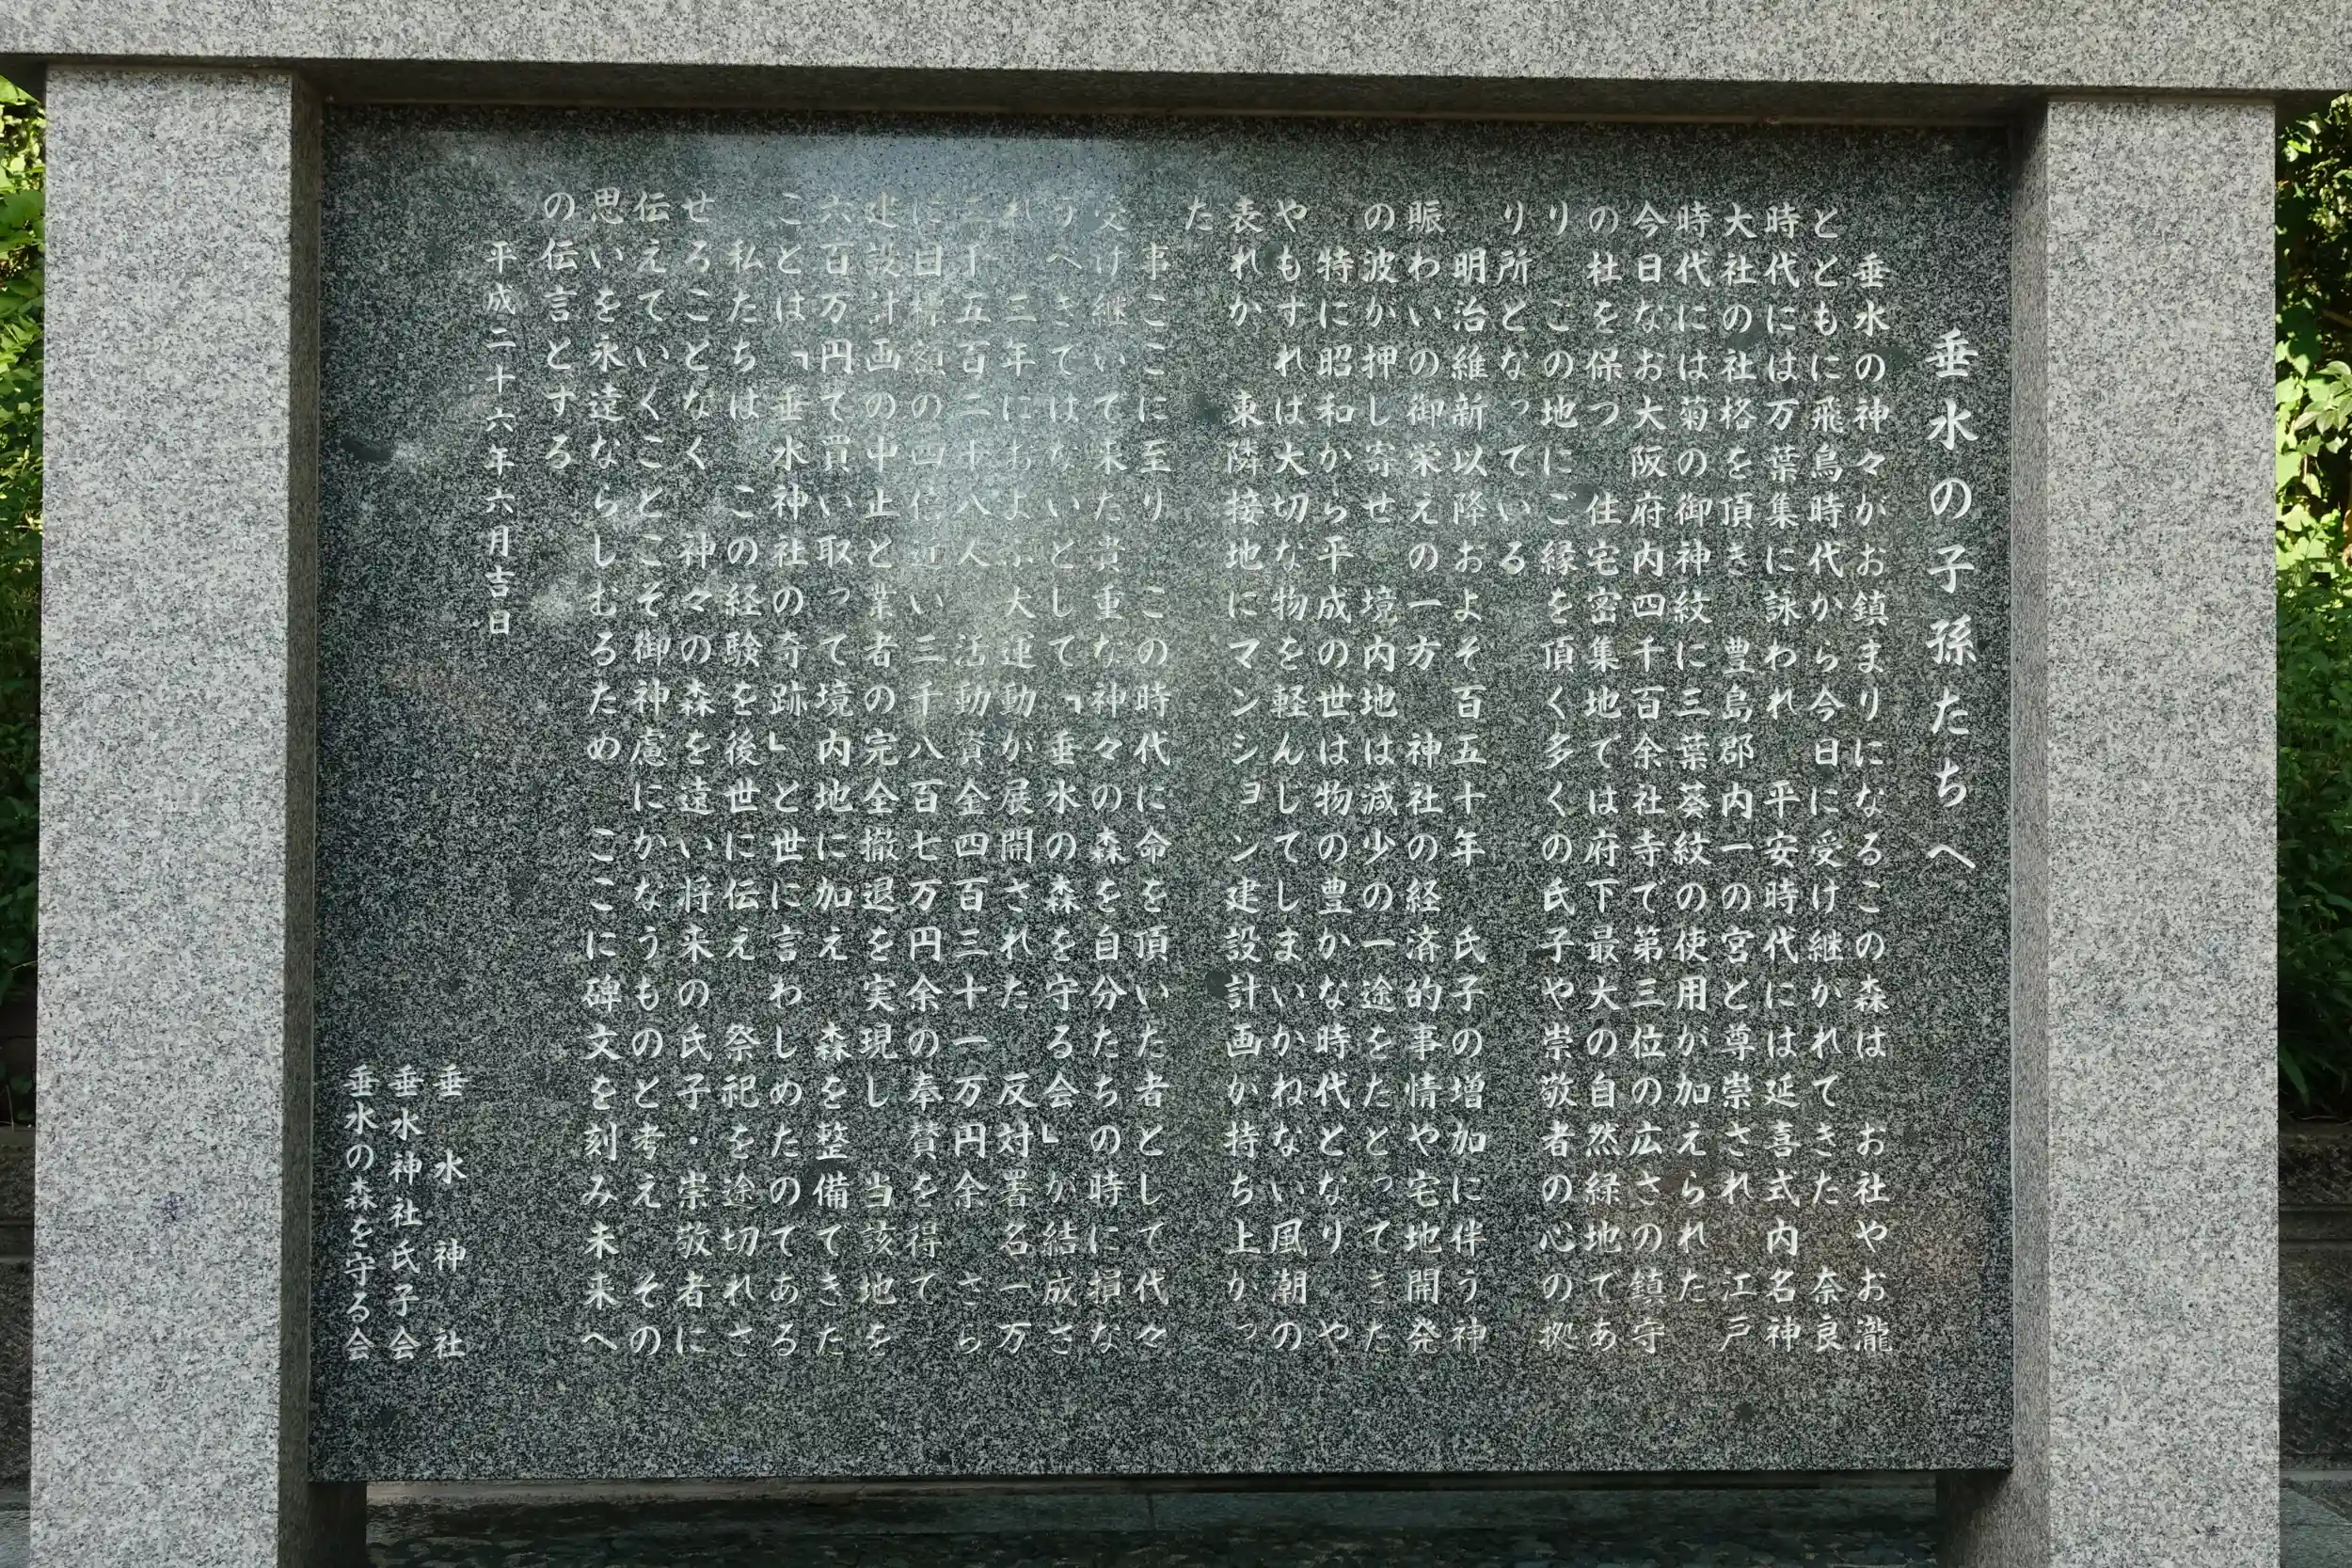 垂水の子孫たちへ
垂水の神々がお鎮まりになるこの森は お社やお瀧
とともに飛鳥時代から今日に受け継がれてきた 奈良
時代には万葉集に詠われ 平安時代には延喜式内名神
大社の社格を頂き 豊島郡内一の宮と尊崇され 江戸
時代には菊の御神紋に三葉葵紋の使用が加えられた
今日なお大阪府内四千百余社寺て第三位の広さの鎮守
の杜を保つ 住宅密集地ては府下最大の自然緑地てあ
り この地にご縁を頂く多くの氏子や崇敬者の心の拠
り所となっている
明治維新以降およそ百五十年 氏子の増加に伴う神
賑わいの御栄えの一方 神社の経済的事情や宅地開発
の波が押し寄せ 境内地は減少の一途をたとってきた
特に昭和から平成の世は物の豊かな時代となり や
やもすれば大切な物を軽んじてしまいかねない風潮の
表れか 東隣接地にマンション建設計画か持ち上かっ
た
事ここに至り この時代に命を頂いた者として代々
受け継いて来た貴重な神々の森を自分たちの時に損な
うべきてはないとして「垂水の森を守る会」が結成さ
れ 三年におよぶ大運動が展開された 反対署名一万
三千五百二十八人 活動資金四百三十一万円余 さら
に目標額の四倍近い三千八百七万円余の奉賛を得て
建設計画の中止と業者の完全撤退を実現し 当該地を
六百万円て買い取って境内地に加え 森を整備てきた
ことは「垂水神社の奇跡」と世に言わしめたのてある
私たちは この経験を後世に伝え 祭祀を途切れさ
せることなく 神々の森を遠い将来の氏子・崇敬者に
伝えていくことこそ御神慮にかなうものと考え その
思いを永遠ならしむるため ここに碑文を刻み未来へ
の伝言とする
平成二十六年六月吉日
垂水神社
垂水神社氏子会
垂水の森を守る会